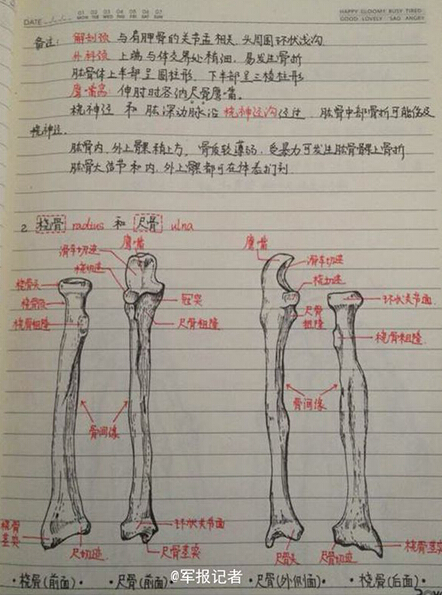 DATE
01 02 03 04 05 06 07
MON TUE WED THU FRI SAT SUN
HAPPY GLOOMY BUSY TIRED
GOOD LOVELY SAD ANGRY
备注: 解剖颈 与肩胛骨的关节盂相关,头周围环状浅沟
外科颈 上端与体交界处稍细,易发生骨折
肱骨体上半部呈圆柱形,下半部呈三棱柱形
鹰嘴窝 伸肘时容纳尺骨鹰嘴。
桡神经和肱深动脉沿桡神经沟经过,肱骨中部骨折可能伤及
桡神经。
肱骨内、外上髁稍上方,骨质较薄弱,受暴力可发生肱骨髁上骨折
肱骨大结节和内、外上髁都可在体表扪到
2. 桡骨 radius 和 尺骨 ulna
鹰嘴
滑车切迹
桡切迹
桡骨头
桡骨颈
桡骨粗隆
冠突
尺骨粗隆
骨间缘
桡骨茎突
尺切迹
环状关节面
尺骨茎突
鹰嘴
滑车切迹
桡切迹
尺骨粗隆
环状关节面
桡骨粗隆
骨间缘
尺骨头
尺骨切迹
桡骨茎突
·桡骨(前面) ·尺骨(前面) ·尺骨(外侧面) ·桡骨(后面)
@军报记者